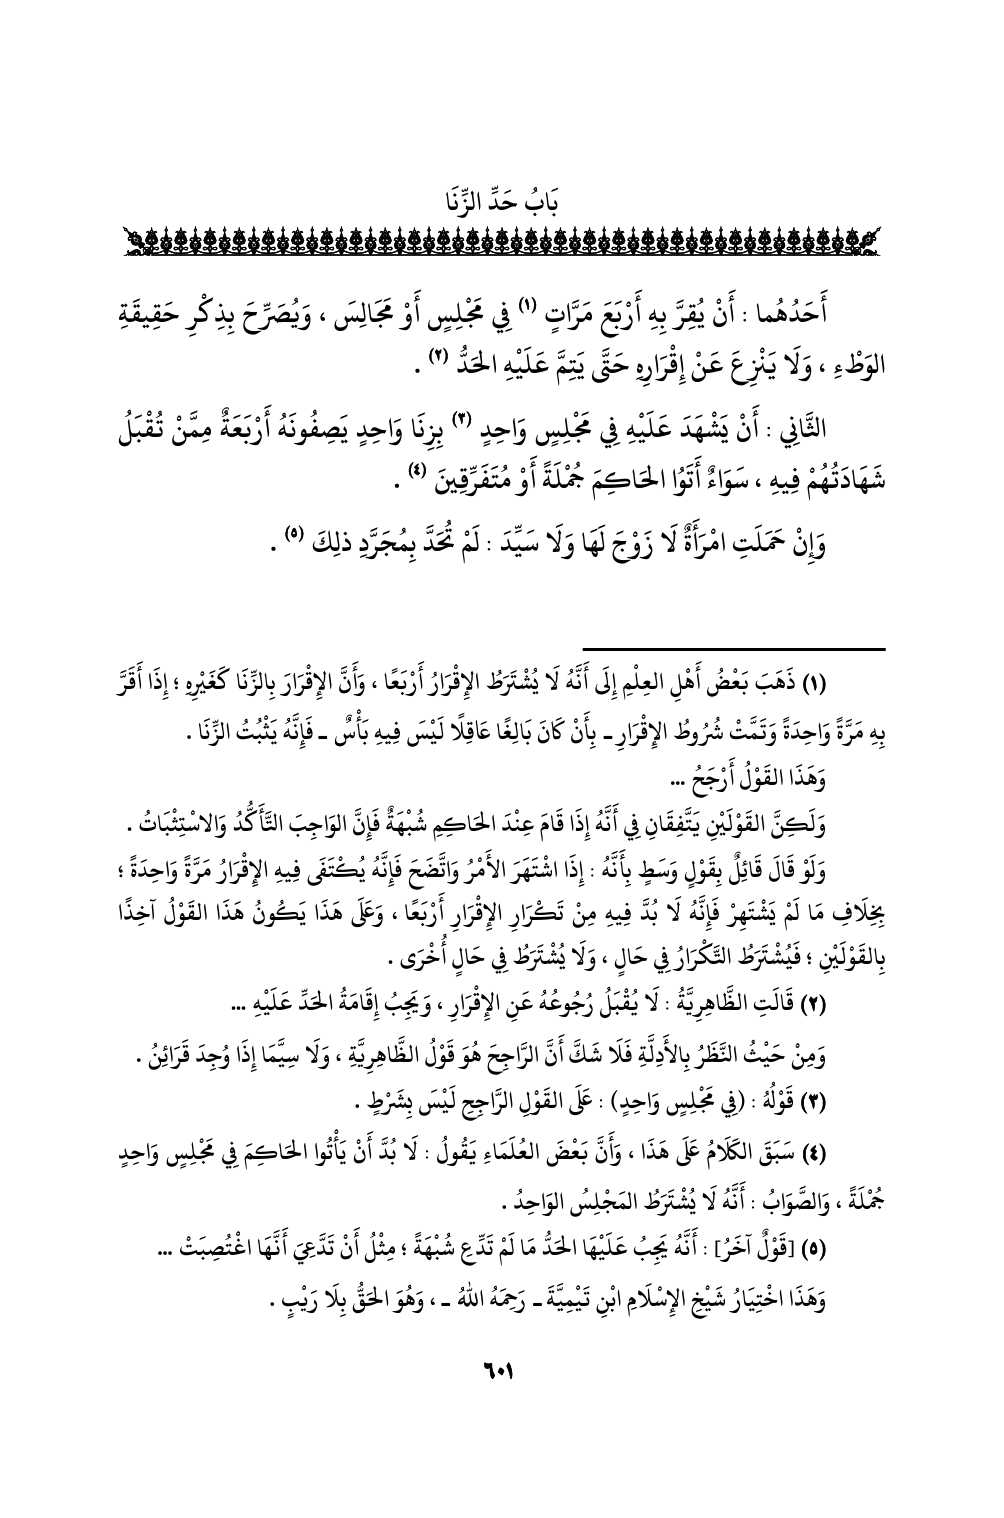 بَابُ حَدِّ الزِّنَا
أَحَدُهُما : أَنْ يُقِرَّ بِهِ أَرْبَعَ مَرَّاتٍ (١) فِي مَجْلِسٍ أَوْ مَجَالِسَ ، وَيُصَرِّحَ بِذِكْرِ حَقِيقَةِ
الوَطْءِ ، وَلَا يَنْزِعَ عَنْ إِقْرَارِهِ حَتَّى يَتِمَّ عَلَيْهِ الحَدُّ (٢) .
الثَّانِي : أَنْ يَشْهَدَ عَلَيْهِ فِي مَجْلِسٍ وَاحِدٍ (٣) بِزِنَا وَاحِدٍ يَصِفُونَهُ أَرْبَعَةٌ مِمَّنْ تُقْبَلُ
شَهَادَتُهُمْ فِيهِ ، سَوَاءٌ أَتَوُا الحَاكِمَ جُمْلَةً أَوْ مُتَفَرِّقِينَ (٤) .
وَإِنْ حَمَلَتِ امْرَأَةٌ لَا زَوْجَ لَهَا وَلَا سَيِّدَ : لَمْ تُحَدَّ بِمُجَرَّدِ ذلِكَ (٥) .
(١) ذَهَبَ بَعْضُ أَهْلِ العِلْمِ إِلَى أَنَّهُ لَا يُشْتَرَطُ الإِقْرَارُ أَرْبَعًا ، وَأَنَّ الإِقْرَارَ بِالزِّنَا كَغَيْرِهِ ؛ إِذَا أَقَرَّ
بِهِ مَرَّةً وَاحِدَةً وَتَمَّتْ شُرُوطُ الإِقْرَارِ ـ بِأَنْ كَانَ بَالِغًا عَاقِلًا لَيْسَ فِيهِ بَأْسٌ ـ فَإِنَّهُ يَثْبُتُ الزِّنَا .
وَهَذَا القَوْلُ أَرْجَحُ ...
وَلَكِنَّ القَوْلَيْنِ يَتَّفِقَانِ فِي أَنَّهُ إِذَا قَامَ عِنْدَ الحَاكِمِ شُبْهَةٌ فَإِنَّ الوَاجِبَ التَّأَكُّدُ وَالاسْتِثْبَاتُ .
وَلَوْ قَالَ قَائِلٌ بِقَوْلٍ وَسَطٍ بِأَنَّهُ : إِذَا اشْتَهَرَ الأَمْرُ وَاتَّضَحَ فَإِنَّهُ يُكْتَفَى فِيهِ الإِقْرَارُ مَرَّةً وَاحِدَةً ؛
بِخِلَافِ مَا لَمْ يَشْتَهِرْ فَإِنَّهُ لَا بُدَّ فِيهِ مِنْ تَكْرَارِ الإِقْرَارِ أَرْبَعًا ، وَعَلَى هَذَا يَكُونُ هَذَا القَوْلُ آخِذًا
بِالقَوْلَيْنِ ؛ فَيُشْتَرَطُ التَّكْرَارُ فِي حَالٍ ، وَلَا يُشْتَرَطُ فِي حَالٍ أُخْرَى .
(٢) قَالَتِ الظَّاهِرِيَّةُ : لَا يُقْبَلُ رُجُوعُهُ عَنِ الإِقْرَارِ ، وَيَجِبُ إِقَامَةُ الحَدِّ عَلَيْهِ ...
وَمِنْ حَيْثُ النَّظَرُ بِالأَدِلَّةِ فَلَا شَكَّ أَنَّ الرَّاجِحَ هُوَ قَوْلُ الظَّاهِرِيَّةِ ، وَلَا سِيَّمَا إِذَا وُجِدَ قَرَائِنُ .
(٣) قَوْلُهُ : (فِي مَجْلِسٍ وَاحِدٍ) : عَلَى القَوْلِ الرَّاجِحِ لَيْسَ بِشَرْطٍ .
(٤) سَبَقَ الكَلَامُ عَلَى هَذَا ، وَأَنَّ بَعْضَ العُلَمَاءِ يَقُولُ : لَا بُدَّ أَنْ يَأْتُوا الحَاكِمَ فِي مَجْلِسٍ وَاحِدٍ
جُمْلَةً ، وَالصَّوَابُ : أَنَّهُ لَا يُشْتَرَطُ المَجْلِسُ الوَاحِدُ .
(٥) [قَوْلٌ آخَرُ] : أَنَّهُ يَجِبُ عَلَيْهَا الحَدُّ مَا لَمْ تَدَّعِ شُبْهَةً ؛ مِثْلُ أَنْ تَدَّعِيَ أَنَّهَا اغْتُصِبَتْ ...
وَهَذَا اخْتِيَارُ شَيْخِ الإِسْلَامِ ابْنِ تَيْمِيَّةَ ـ رَحِمَهُ اللهُ ـ ، وَهُوَ الحَقُّ بِلَا رَيْبٍ .
٦٠١